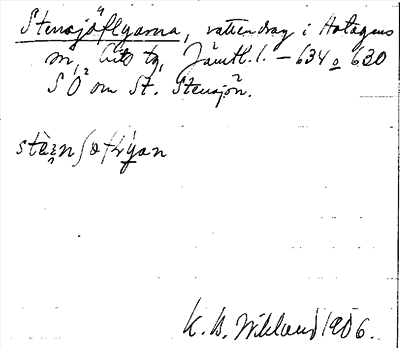 Stensjöflyarna, vattendrag i Hotagens
sn, Lits tg, Jämtl. l. — 634 o 630
S O om St. Stensjön.
K. B. Wiklund 1906.